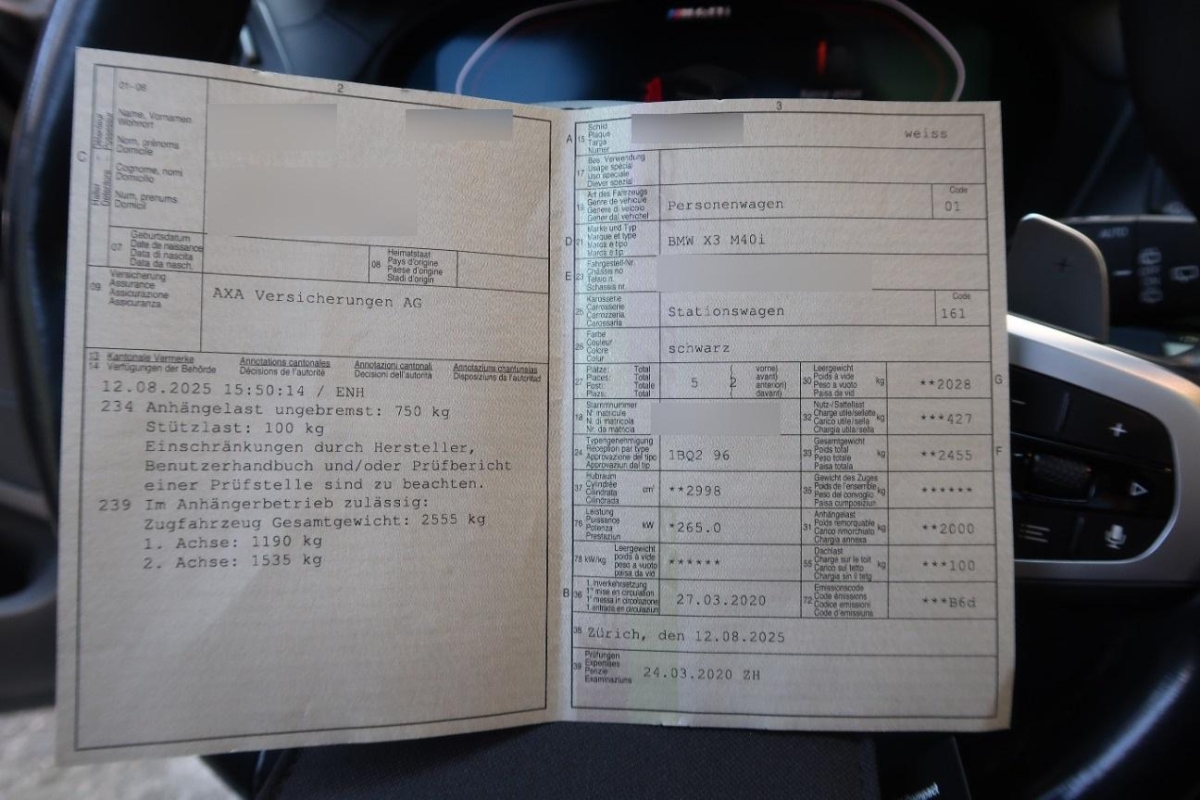 M40i
2
01-06
Name, Vornamen
Wohnort
Nom, prénoms
Domicile
Cognome, nomi
Domicilio
Num, prenums
Domicil
C
07
Geburtsdatum
Date de naissance
Data di nascita
Data da nasch.
08
Heimatstaat
Pays d'origine
Paese d'origine
Stadi d'origin
09
Versicherung
Assurance
Assicurazione
Assicuranza
AXA Versicherungen AG
13 Kantonale Vermerke
14 Verfügungen der Behörde
Annotations cantonales
Décisions de l'autorité
Annotazioni cantonali
Decisioni dell'autorità
Annotaziuns chantunalas
Disposiziuns da l'autoritad
12.08.2025 15:50:14 / ENH
234 Anhängelast ungebremst: 750 kg
Stützlast: 100 kg
Einschränkungen durch Hersteller,
Benutzerhandbuch und/oder Prüfbericht
einer Prüfstelle sind zu beachten.
239 Im Anhängerbetrieb zulässig:
Zugfahrzeug Gesamtgewicht: 2555 kg
1. Achse: 1190 kg
2. Achse: 1535 kg
3
A 15
Schild
Plaque
Targa
Numer
weiss
17
Bes. Verwendung
Usage spécial
Uso speciale
Diever spezial
Art des Fahrzeugs
Genre de véhicule
Genere di veicolo
Gener dal vehichel
Personenwagen
Code
01
D 21
Marke und Typ
Marque et type
Marca e tipo
Marca e tip
BMW X3 M40i
E 23
Fahrgestell-Nr.
Châssis no
Telaio n.
Schassis nr.
25
Karosserie
Carrosserie
Carrozzeria
Carossaria
Stationswagen
Code
161
26
Farbe
Couleur
Colore
Colur
schwarz
27
Plätze: Total
Places: Total
Posti: Totale
Plazs: Total
5
( vorne)
( avant)
( anteriori)
( davant)
2
30
Leergewicht
Poids à vide
Peso a vuoto
Paisa da vid
kg
**2028
G
18
Stammnummer
N° matricule
N. di matricola
Nr. da matricla
32
Nutz-/Sattellast
Charge utile/sellette
Carico utile/sella
Chargia utila/sella
kg
***427
24
Typengenehmigung
Réception par type
Approvazione del tipo
Approvaziun dal tip
1BQ2 96
33
Gesamtgewicht
Poids total
Peso totale
Paisa totala
kg
**2455
F
37
Hubraum
Cylindrée
Cilindrata
Cilindrada
cm³
**2998
35
Gewicht des Zuges
Poids de l'ensemble
Peso del convoglio
Paisa cumposiziun
kg
******
76
Leistung
Puissance
Potenza
Prestaziun
kW
*265.0
31
Anhängelast
Poids remorquable
Carico rimorchiato
Chargia annexa
kg
**2000
78 kW/kg
Leergewicht
poids à vide
peso a vuoto
paisa da vid
******
55
Dachlast
Charge sur le toit
Carico sul tetto
Chargia sin il tetg
kg
***100
B 36
1. Inverkehrsetzung
1re mise en circulation
1a messa in circolazione
1. entrada en circulaziun
27.03.2020
72
Emissionscode
Code émissions
Codice emissioni
Code d'emissiuns
***B6d
38 Zürich, den 12.08.2025
39
Prüfungen
Expertises
Perizie
Examinaziuns
24.03.2020 ZH
AUTO